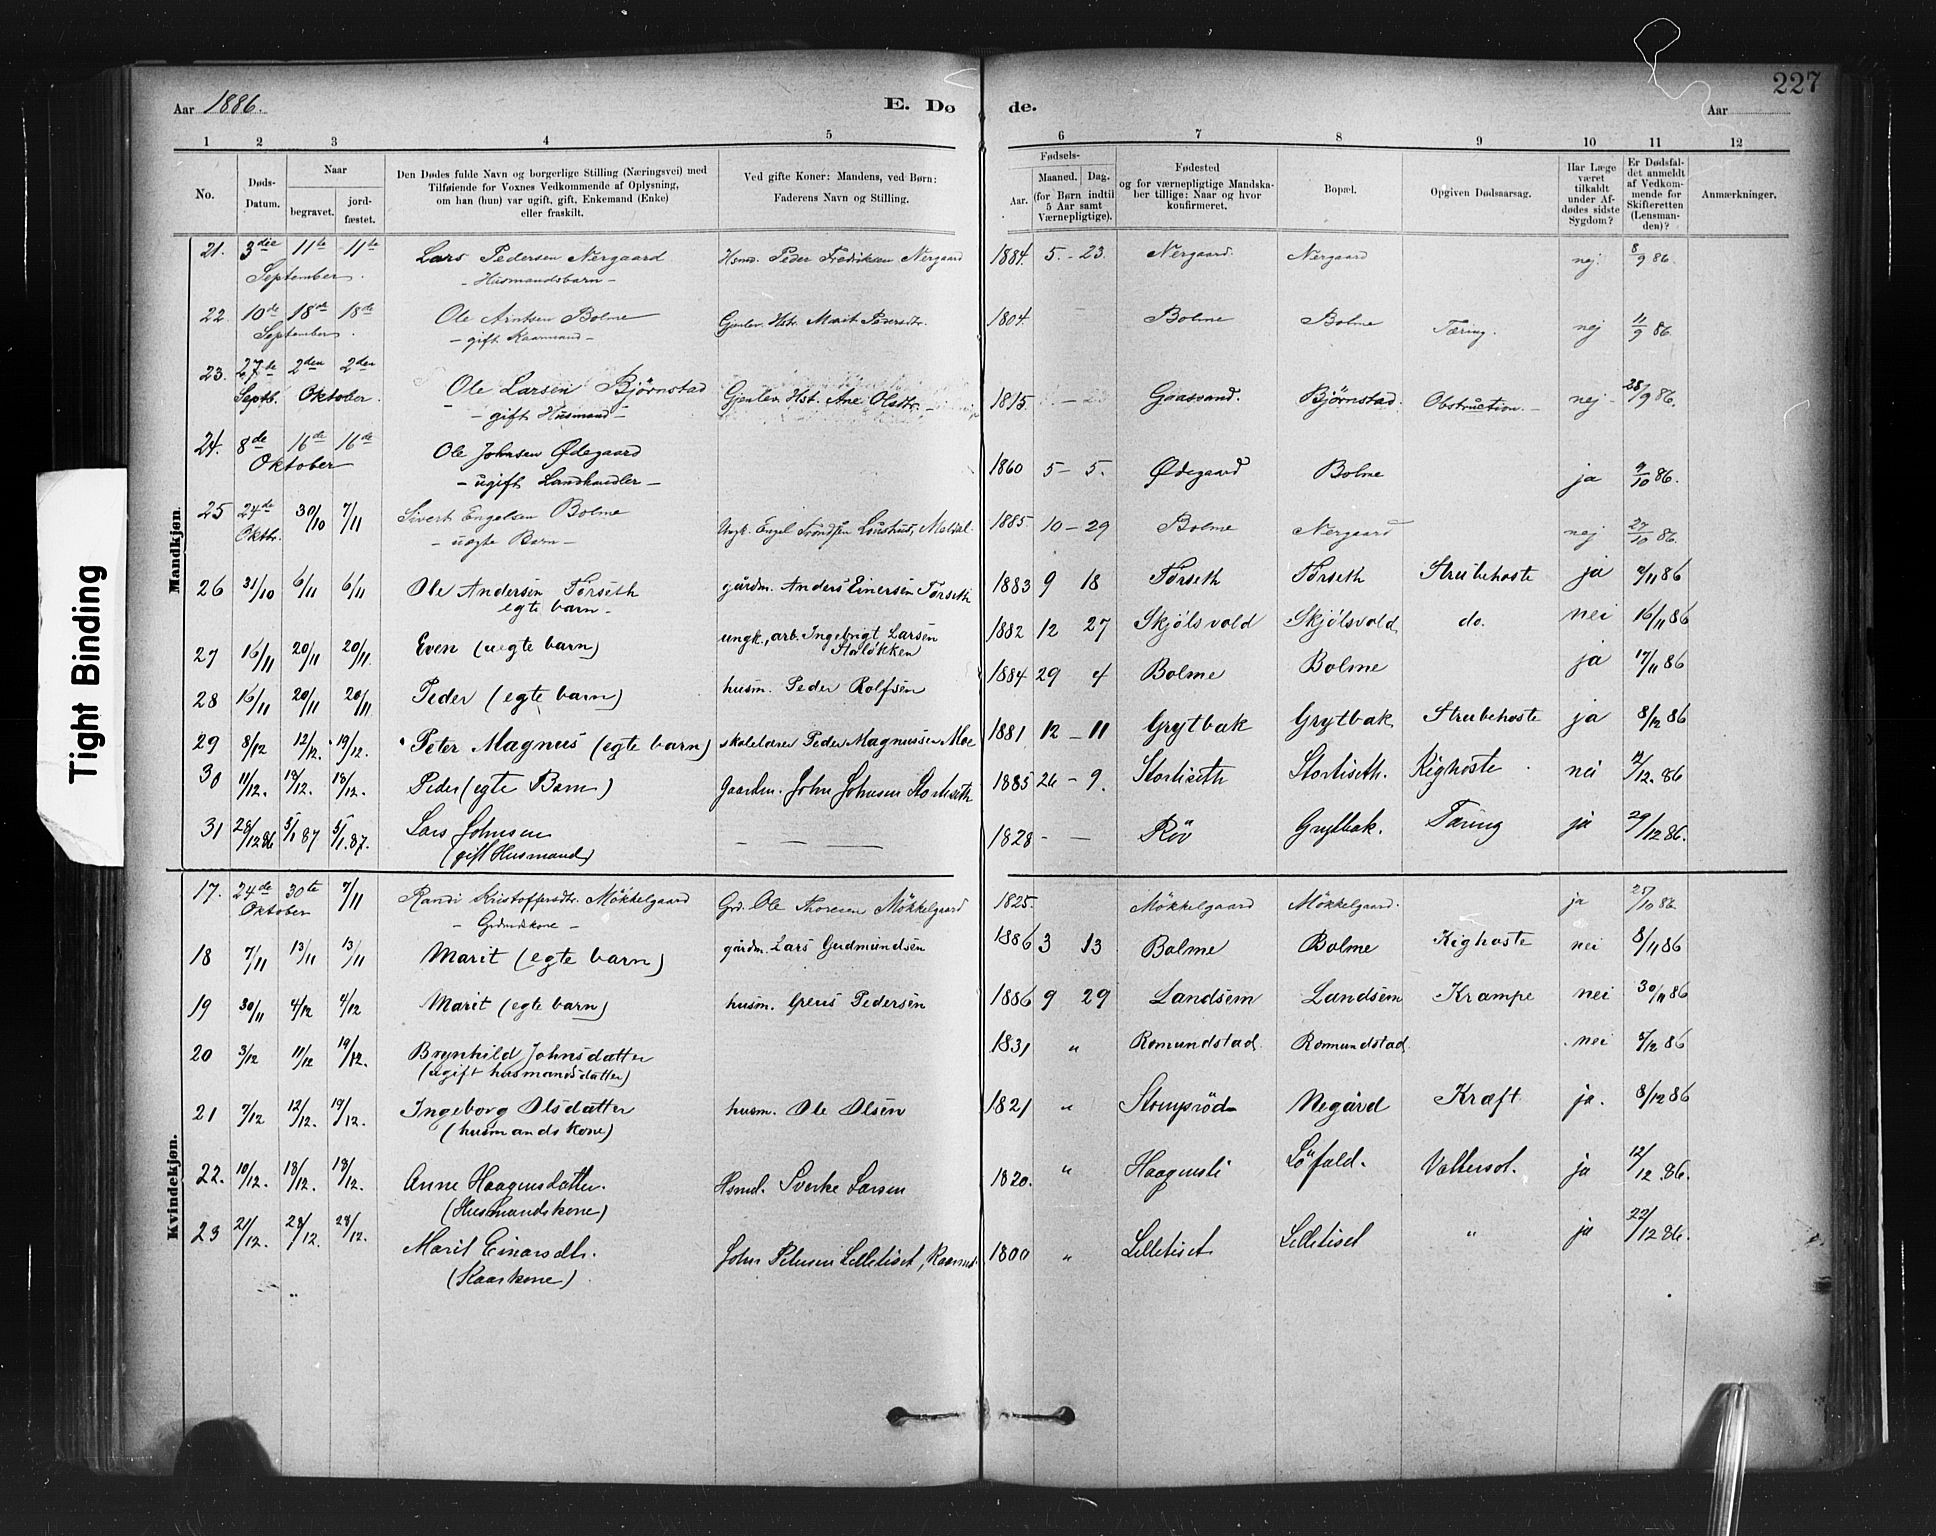 227
Aar 1886.
E. Dø de.
Aar
1 2 3 4 5 6 7 8 9 10 11 12
No.
Døds-Datum.
Naar
begravet.
jord-fæstet.
Den Dødes fulde Navn og borgerlige Stilling (Næringsvei) med
Tilføiende for Voxnes Vedkommende af Oplysning,
om han (hun) var ugift, gift, Enkemand (Enke)
eller fraskilt.
Ved gifte Koner: Mandens, ved Børn:
Faderens Navn og Stilling.
Fødsels-
Aar.
Maaned. Dag.
(for Børn indtil
5 Aar samt
Værnepligtige).
Fødested
og for værnepligtige Mandska-
ber tillige: Naar og hvor
konfirmeret.
Bopæl.
Opgiven Dødsaarsag.
Har Læge
været
tilkaldt
under Af-
dødes sidste
Sygdom?
Er Dødsfal-
det anmeldt
af Vedkom-
mende for
Skifteretten
(Lensman-
den)?
Anmærkninger.
Mandkjøn.
21. 3die 11te 11te Lars Pedersen Nergaard Hsmd. Peder Fredriksen Nergaard 1884. 5. - 23. Nergaard. Nergaard nej. 8/9 86
September. - Husmandsbarn -
22. 10de 18de 18de Ole Arntsen Bolme Gjenlev. Hstr. Marit Pedersdtr. 1804. Bolme Bolme Tæring. nej 11/9 86.
September. - gift Kaarmand -
23. 27de 2den 2den Ole Larsen Bjørnstad Gjenlev. Hst. Ane Olsdtr. 1815. Gaasvand. Bjørnstad. Obstruction. nej 28/9 86.
Septb. Oktober. - gift Husmand -
24. 8de 16de 16de Ole Johnsen Ødegaard 1860 5 - 5. Ødegaard Bolme ja 9/10 86.
Oktober - ugift Landhandler -
25 24de 30/10 7/11 Sivert Engelsen Bolme Ungk. Engel Trondsen 1885. 10 - 29 Bolme Nergaard nej 27/10 86.
Oktbr. - uægte Barn -
26 31/10 6/11 6/11 Ole Andersen Torseth gårdm. Anders Einersen Torseth 1883 9 18 Torseth Torseth Strubehoste ja 2/11 86
egte barn -
27 16/11 20/11 20/11 Even (uegte barn) ungk., arb. Ingebrigt Larsen Storløkken 1882 12 27 Skjølsvold Skjølsvold do. nei 16/11 86
28 16/11 20/11 20/11 Peder (egte barn) husm. Peder Rolfsen 1884 29 4 Bolme Bolme ja 17/11 86
29 8/12 12/12. 19/12. Peter Magnus (egte barn) skolelærer Peder Magnussen Moe 1881 12 - 11 Grytbak Grytbak Strubehoste ja 8/12 86
30 11/12. 18/12. 18/12. Peder (egte Barn) Gaardm. John Johnsen Stortiseth 1885 26 - 9. Stortiseth Stortiseth. Kighoste nei 12/12. 86
31 28/12 86 5/1 87 5/1. 87. Lars Johnsen - - - 1828 - - Röv Grytbak. Tæring ja 29/12 86.
(gift Husmand)
Kvindekjøn.
17. 24de 30te 7/11 Randi Kristoffersdtr. Mökkelgaard Grd. Ole Thoresen Mökkelgaard 1825. Mökkelgaard Mökkelgaard. ja 25/10 86.
Oktober - Grdmdskone -
18 7/11 13/11 13/11 Marit (egte barn) gårdm. Lars Gudmundsen 1886 3 13 Bolme Bolme Kighoste nei 8/11 86
19 30/11 4/12 4/12 Marit (egte barn) husm. Pedersen 1886 9 29 Landsem Landsem Krampe nei 30/11 86
20 3/12 11/12 19/12. Brynhild Johnsdatter 1831 " Romundstad. Romundstad nei 5/12 86
(ugift husmandsdatter)
21 7/12 12/12. 19/12. Ingeborg Olsdatter husm. Ole Olsen 1821 " Stomprød Negård Kræft ja. 8/12 86
(husmandskone)
22. 10/12. 18/12. 18/12. Anne Haagensdatter. Hsmd. Sverke Larsen 1820. " Haagensli Löfald. Vattersot. ja 12/12 .86.
(Husmandskone)
23 21/12. 28/12. 28/12. Marit Einarsdtr. John Petersen Lilletiset, Kaarmd. 1800 " Lilletiset Lilletiset " ja 22/12 86.
(Kaarkone)
Tight Binding